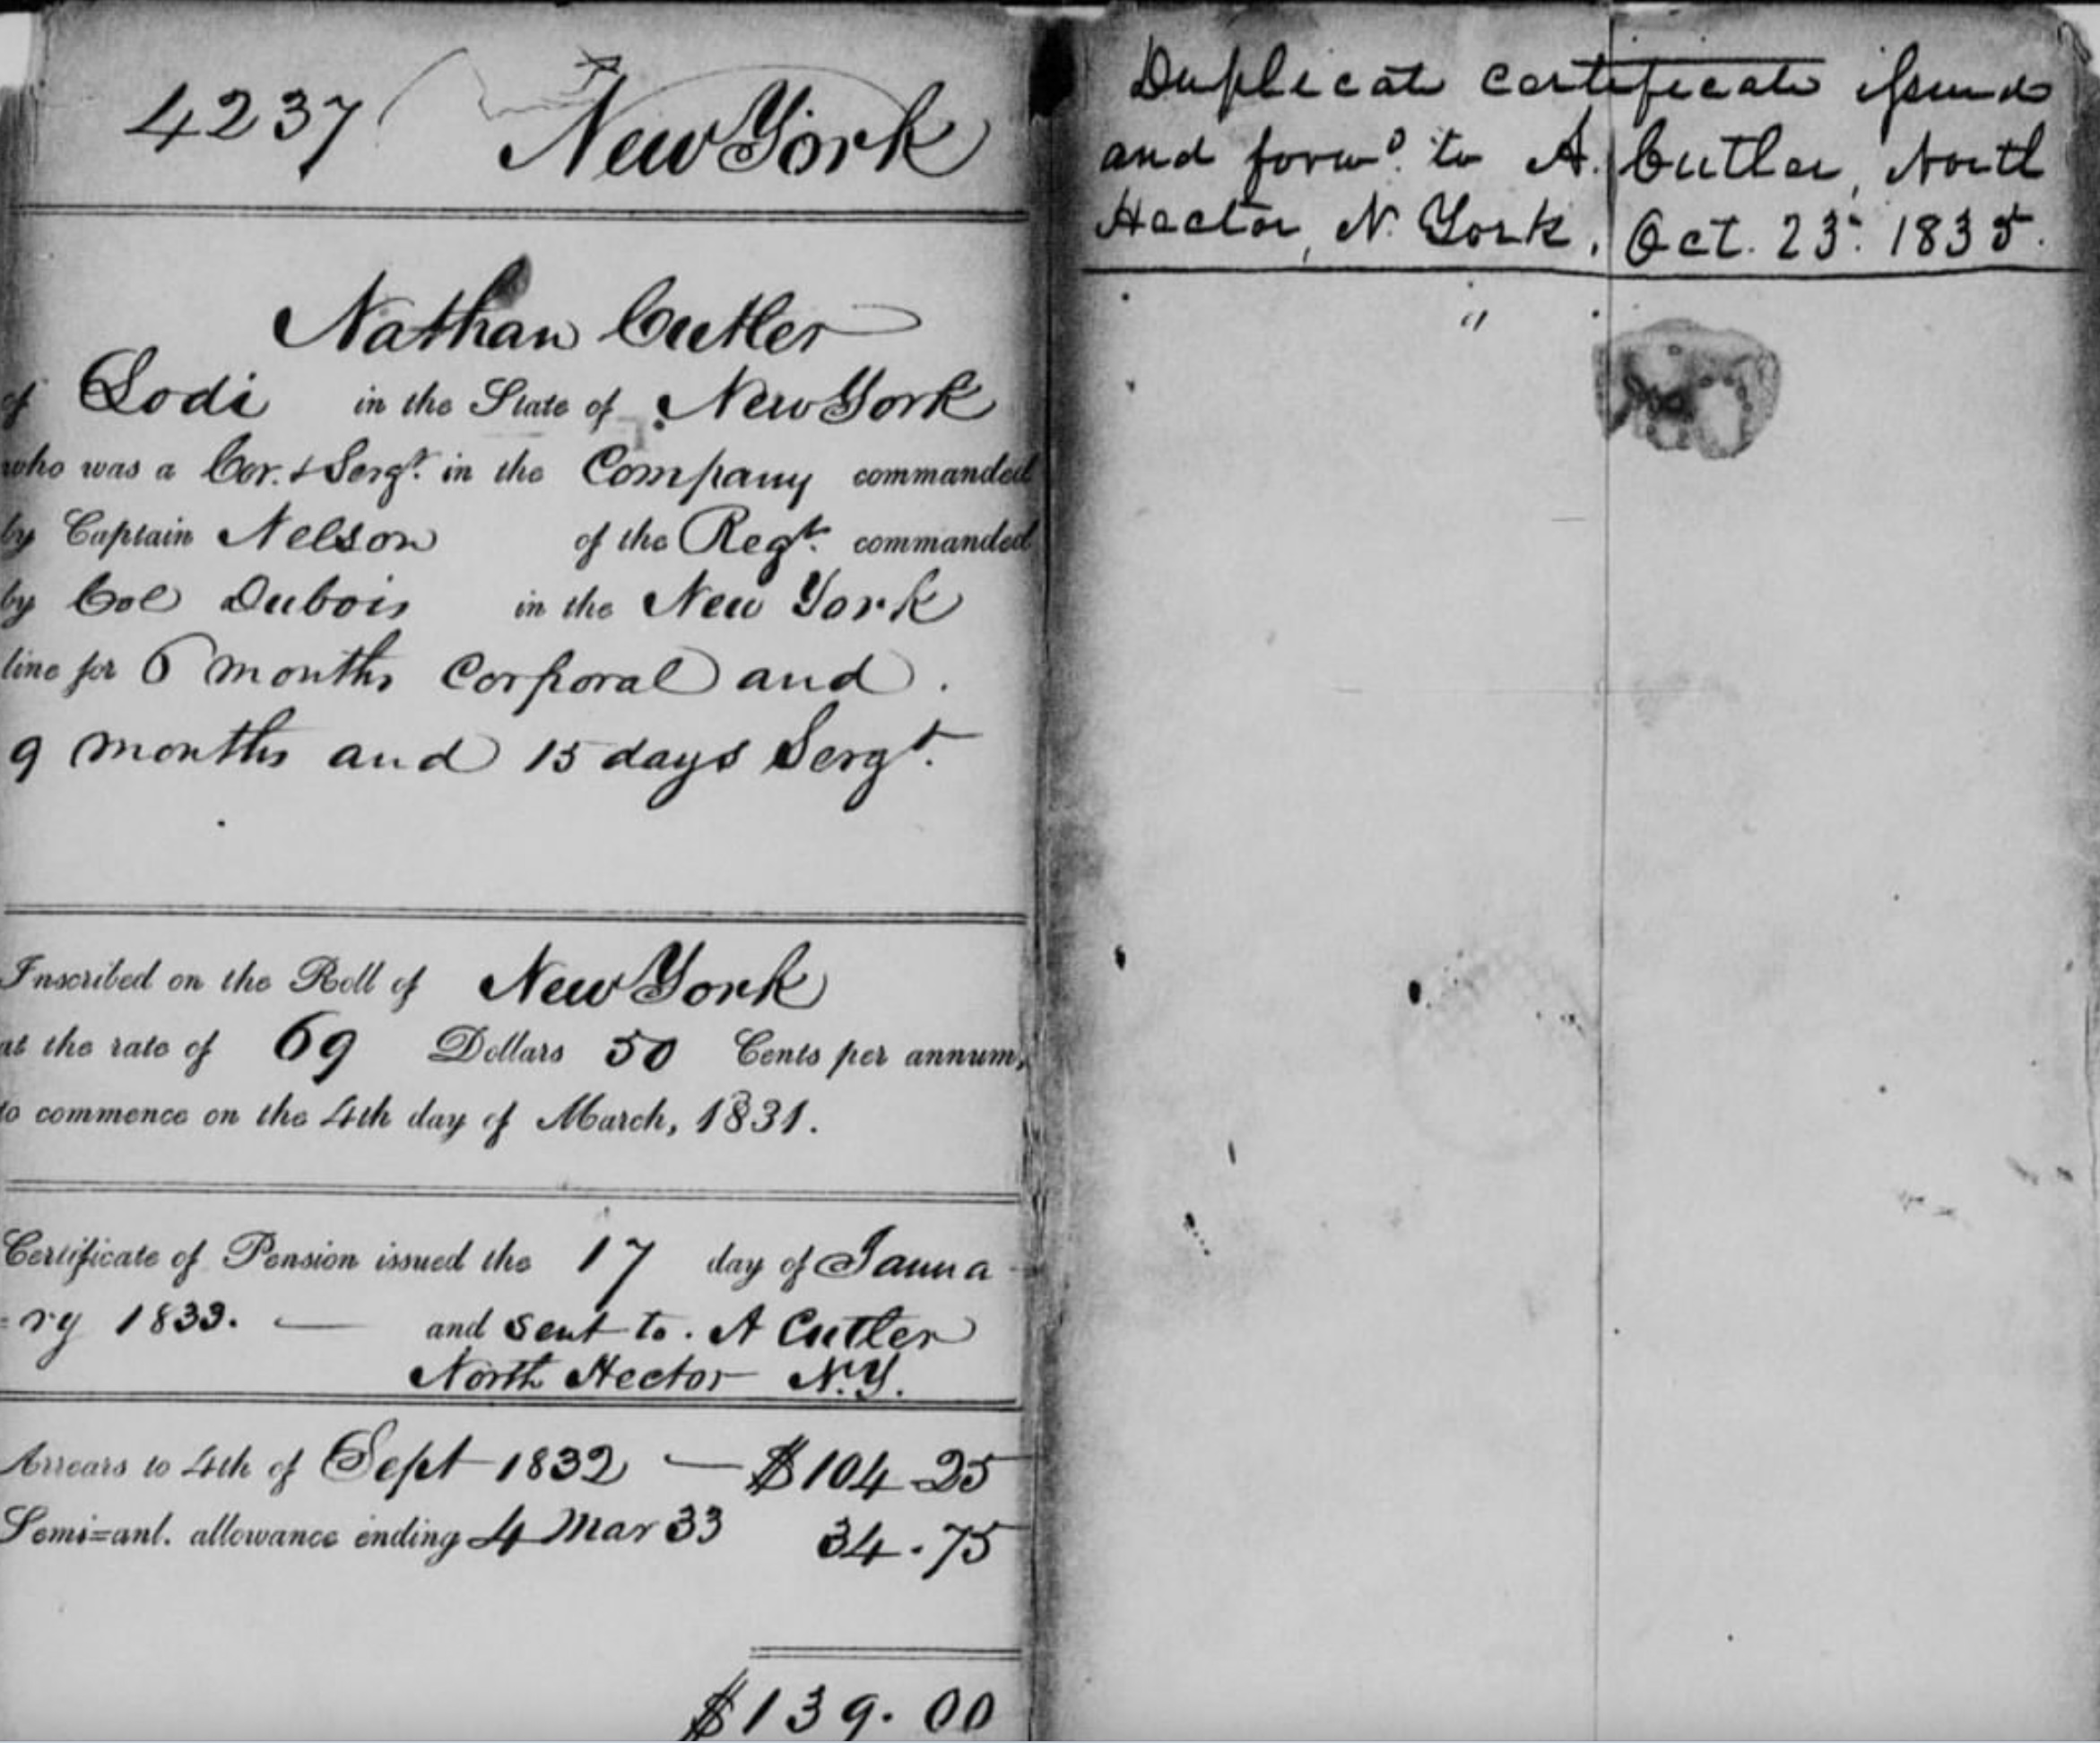 4237 New York
Nathan Cutler
of Lodi in the State of New York
who was a Cor. & Sergt. in the Company commanded
by Captain Nelson of the Regt. commanded
by Col Dubois in the New York
line for 6 months Corporal and
9 months and 15 days Sergt.
Inscribed on the Roll of New York
at the rate of 69 Dollars 50 Cents per annum,
to commence on the 4th day of March, 1831.
Certificate of Pension issued the 17 day of Janua
=ry 1833. — and sent to. A Cutler
North Hector N.Y.
Arrears to 4th of Sept 1832 — $104.25
Semi=anl. allowance ending 4 Mar 33 34.75
$139.00
Duplicate certificate issued
and forwd. to A. Cutler, North
Hector, N. York. Oct. 23. 1835.